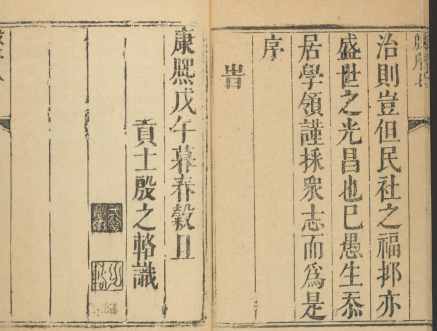 治則豈但民社之福抑亦
盛世之光昌也已愚生忝
居學領謹採衆志而為是
序
旹
康熈戊午暮春榖旦
貢士殷之輅識